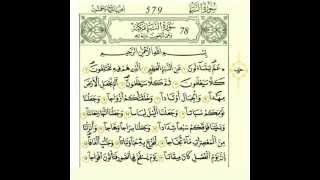 سُورَةُ النَّبَإِ 579
78 سُورَةُ النَّبَإِ مَكِّيَّة
بِسْمِ اللَّهِ الرَّحْمَٰنِ الرَّحِيمِ
عَمَّ يَتَسَاءَلُونَ عَنِ النَّبَإِ الْعَظِيمِ الَّذِي هُمْ فِيهِ مُخْتَلِفُونَ
كَلَّا سَيَعْلَمُونَ ثُمَّ كَلَّا سَيَعْلَمُونَ أَلَمْ نَجْعَلِ الْأَرْضَ
مِهَادًا وَالْجِبَالَ أَوْتَادًا وَخَلَقْنَاكُمْ أَزْوَاجًا وَجَعَلْنَا
نَوْمَكُمْ سُبَاتًا وَجَعَلْنَا اللَّيْلَ لِبَاسًا وَجَعَلْنَا النَّهَارَ مَعَاشًا
وَبَنَيْنَا فَوْقَكُمْ سَبْعًا شِدَادًا وَجَعَلْنَا سِرَاجًا وَهَّاجًا وَأَنْزَلْنَا
مِنَ الْمُعْصِرَاتِ مَاءً ثَجَّاجًا لِنُخْرِجَ بِهِ حَبًّا وَنَبَاتًا وَجَنَّاتٍ أَلْفَافًا
إِنَّ يَوْمَ الْفَصْلِ كَانَ مِيقَاتًا يَوْمَ يُنْفَخُ فِي الصُّورِ فَتَأْتُونَ أَفْوَاجًا